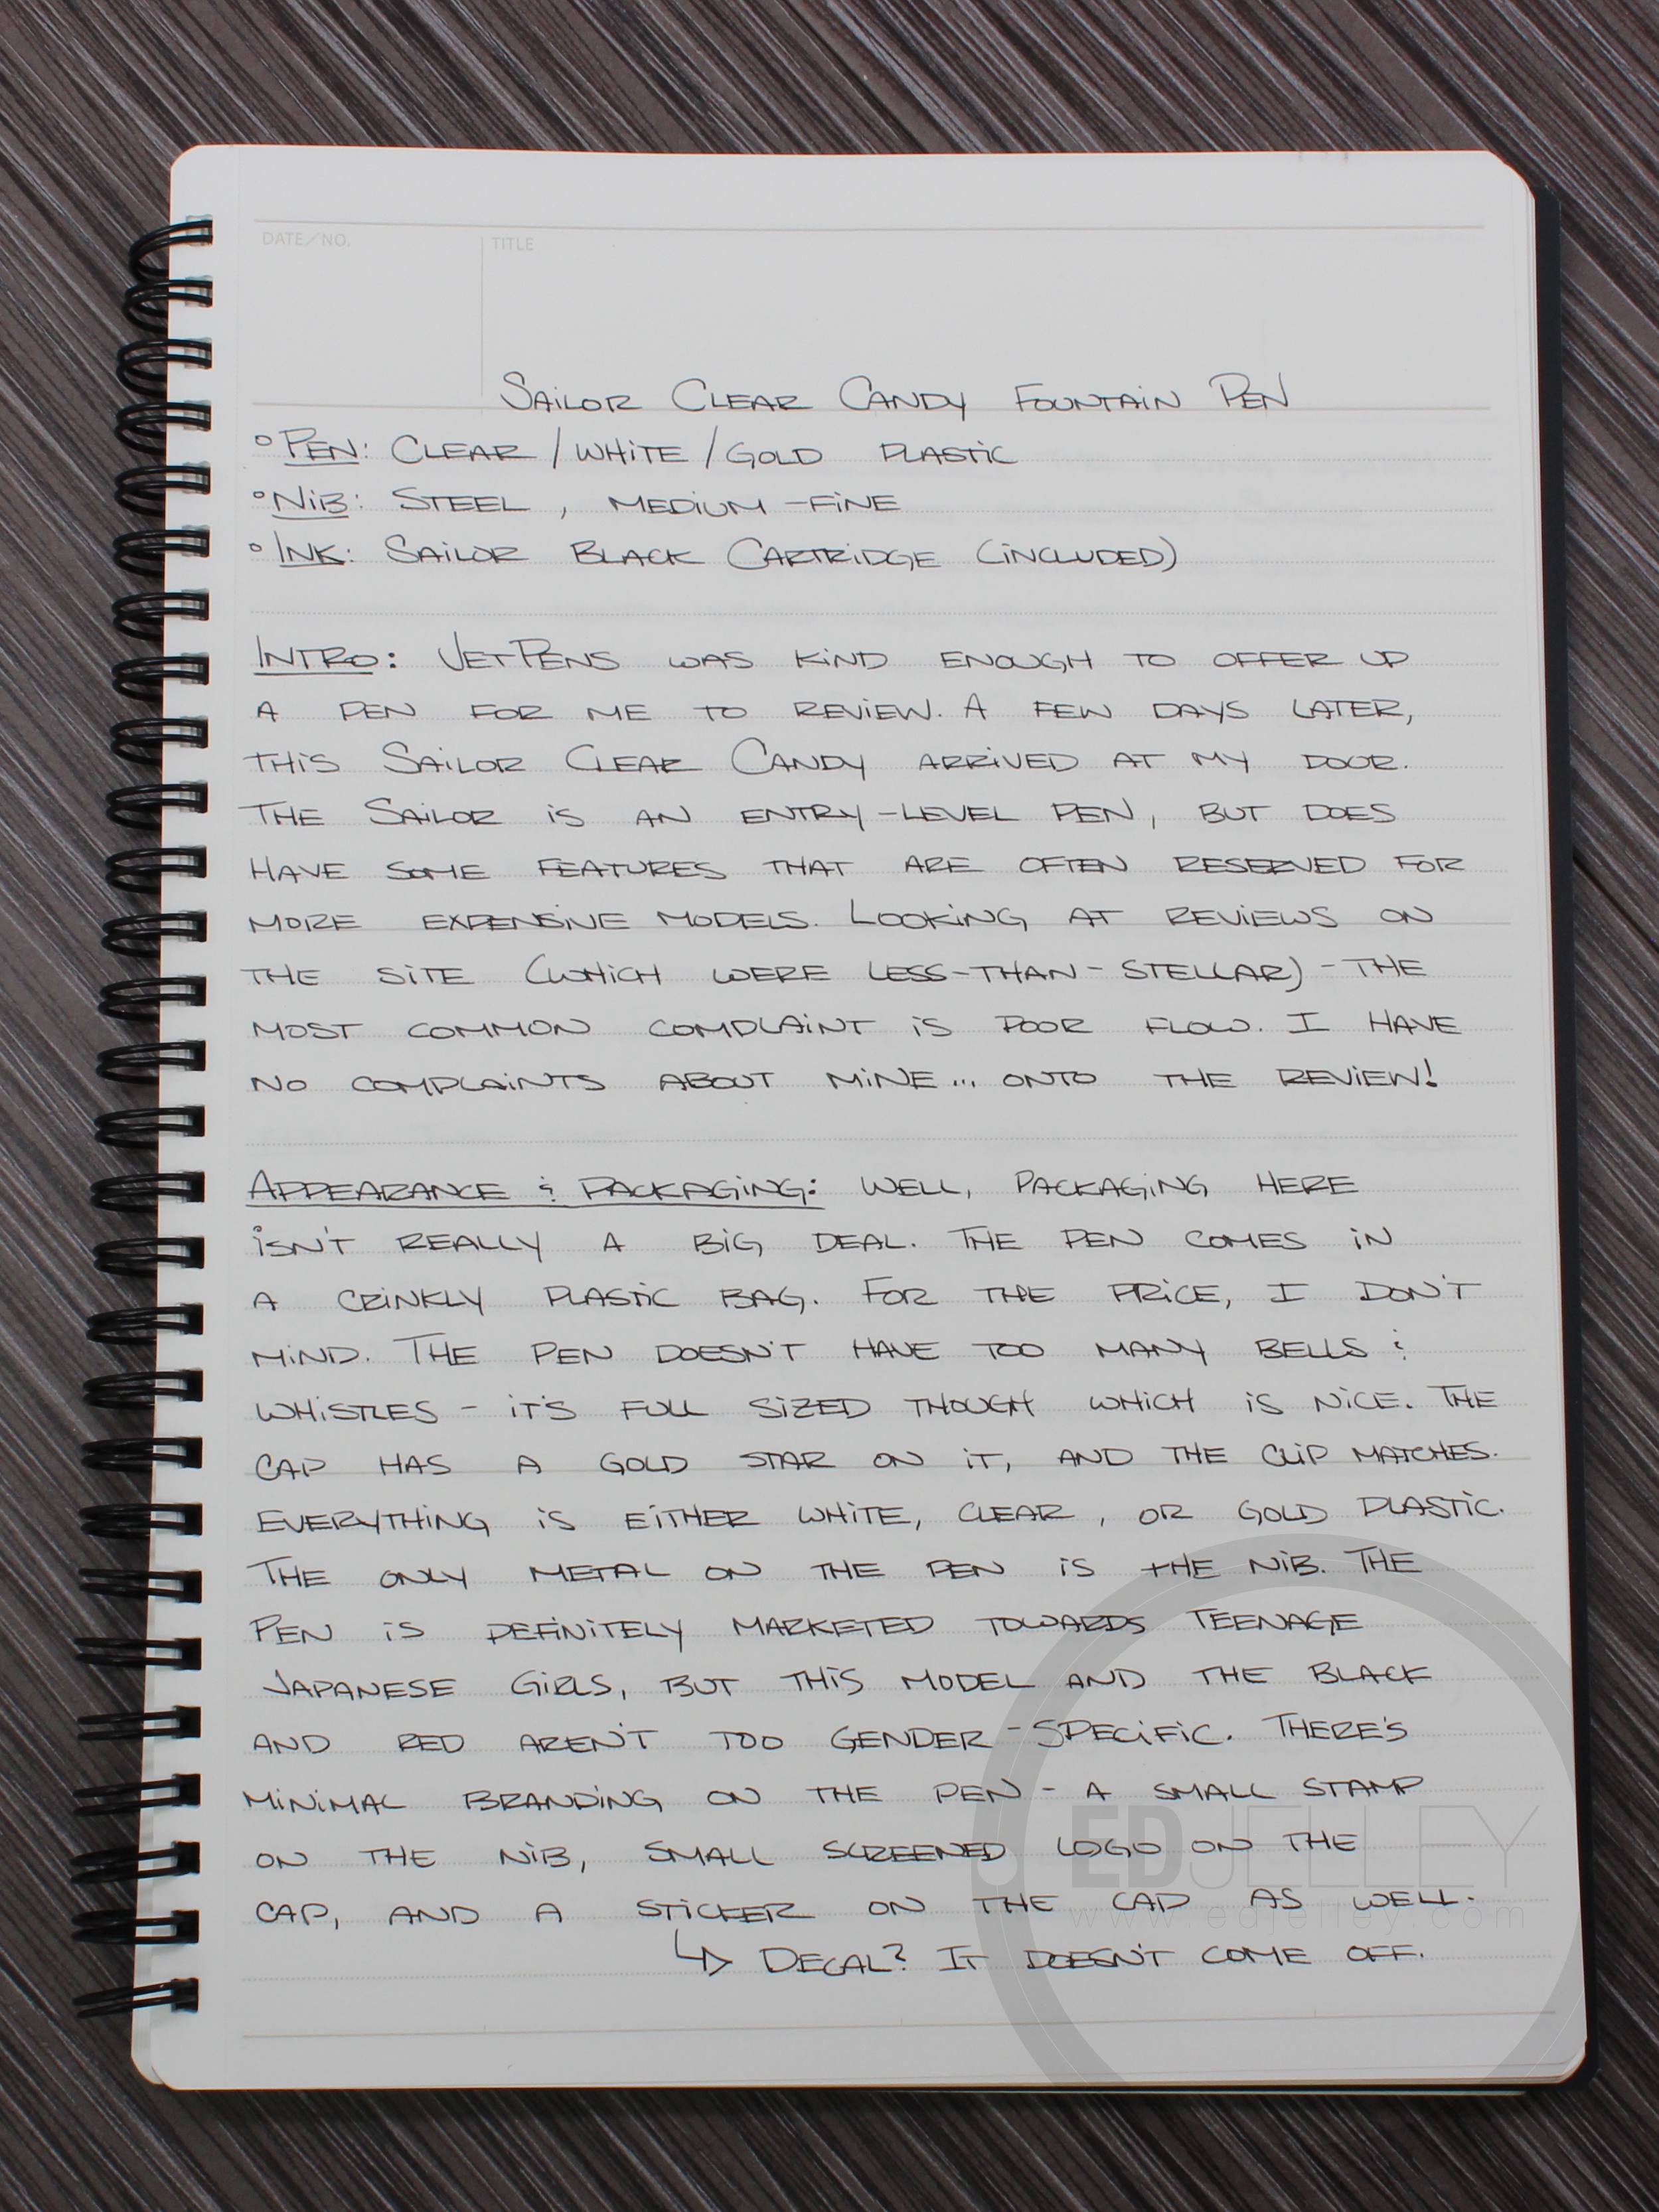 DATE/NO.
TITLE
SAILOR CLEAR CANDY FOUNTAIN PEN
° PEN: CLEAR / WHITE / GOLD PLASTIC
° NIB: STEEL, MEDIUM-FINE
° INK: SAILOR BLACK CARTRIDGE (INCLUDED)
INTRO: JETPENS WAS KIND ENOUGH TO OFFER UP
A PEN FOR ME TO REVIEW. A FEW DAYS LATER,
THIS SAILOR CLEAR CANDY ARRIVED AT MY DOOR.
THE SAILOR IS AN ENTRY-LEVEL PEN, BUT DOES
HAVE SOME FEATURES THAT ARE OFTEN RESERVED FOR
MORE EXPENSIVE MODELS. LOOKING AT REVIEWS ON
THE SITE (WHICH WERE LESS-THAN-STELLAR) - THE
MOST COMMON COMPLAINT IS POOR FLOW. I HAVE
NO COMPLAINTS ABOUT MINE... ONTO THE REVIEW!
APPEARANCE & PACKAGING: WELL, PACKAGING HERE
ISN'T REALLY A BIG DEAL. THE PEN COMES IN
A CRINKLY PLASTIC BAG. FOR THE PRICE, I DON'T
MIND. THE PEN DOESN'T HAVE TOO MANY BELLS &
WHISTLES - IT'S FULL SIZED THOUGH WHICH IS NICE. THE
CAP HAS A GOLD STAR ON IT, AND THE CLIP MATCHES.
EVERYTHING IS EITHER WHITE, CLEAR, OR GOLD PLASTIC.
THE ONLY METAL ON THE PEN IS THE NIB. THE
PEN IS DEFINITELY MARKETED TOWARDS TEENAGE
JAPANESE GIRLS, BUT THIS MODEL AND THE BLACK
AND RED AREN'T TOO GENDER-SPECIFIC. THERE'S
MINIMAL BRANDING ON THE PEN - A SMALL STAMP
ON THE NIB, SMALL SCREENED LOGO ON THE
CAP, AND A STICKER ON THE CAP AS WELL.
↳ DECAL? IT DOESN'T COME OFF.
EDJELLEY
www.edjelley.com